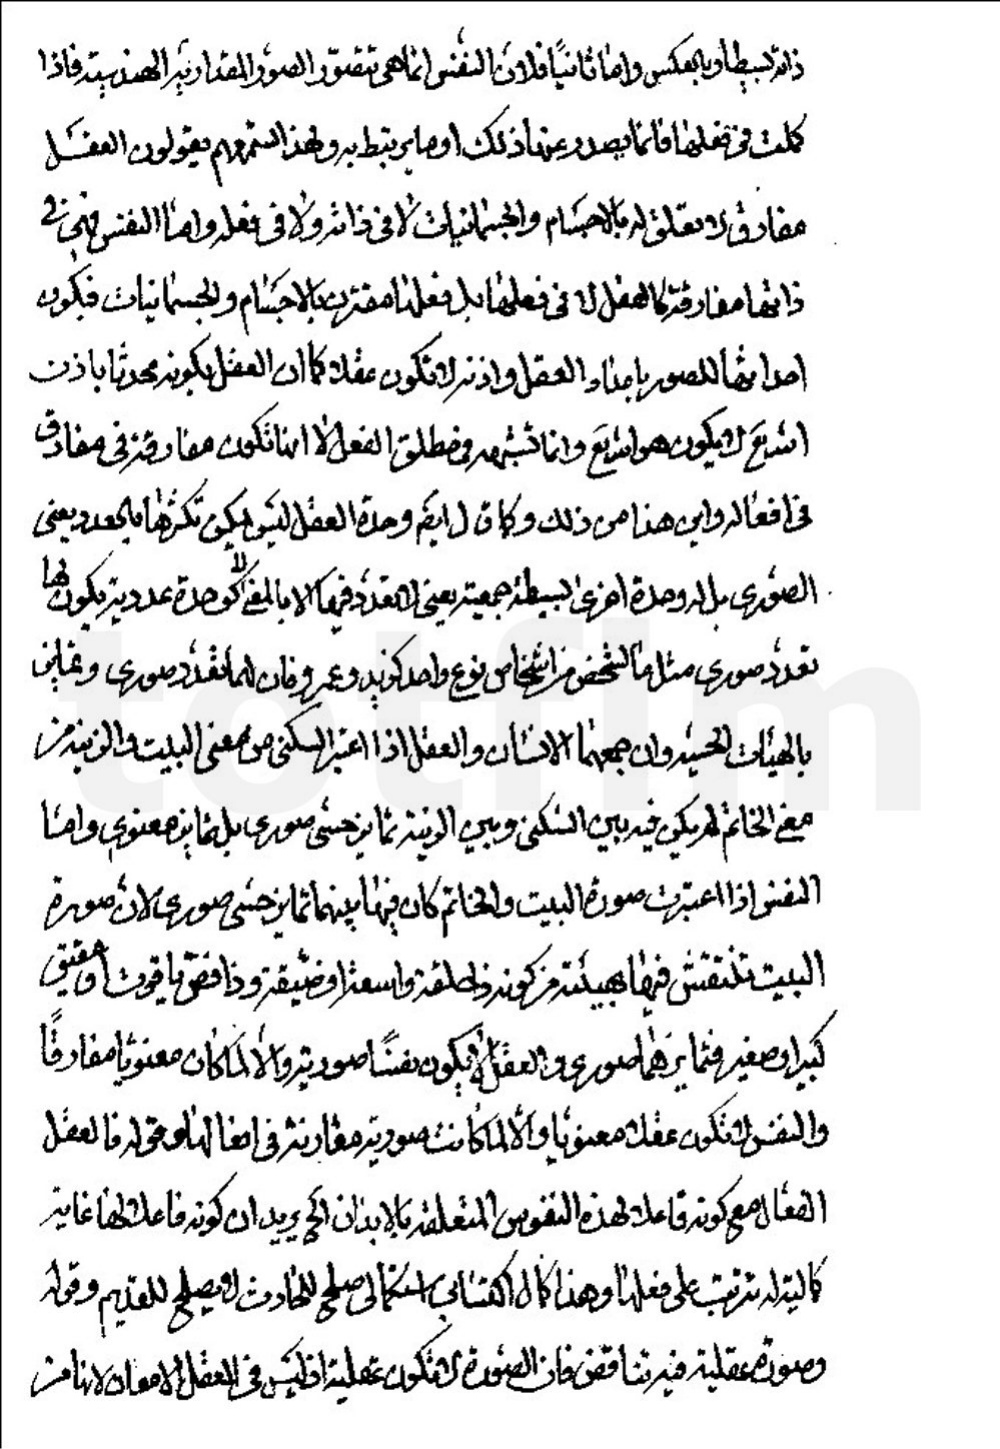 ذاته بسيطا وبالعكس واما ثانيا فلان النفس انما هي تتقوّم الصور المقدارية الهندسية فاذا
كملت في فعلها فانما يصدر عنها ذلك او ما يرتبط به ولهذا تسمعهم يقولون العقل
مفارق لا تعلق له بالاجسام والجسمانيات لا في ذاته ولا في فعله واما النفس فهي في
ذاتها مفارقة كالعقل لا في فعلها بل فعلها مقترن بالاجسام والجسمانيات فيكون
احداثها للصور بامداد العقل واذنه لا تكون عقلا كما ان العقل بكونه محدثا باذن
الله لا يكون هو الله وانما تشبهه في مطلق الفعل لا انها تكون مفارقة في مفارق
في افعاله واين هذا من ذلك وكما قال ايضم وحدة العقل ليس يمكن تكثرها بالعدد يعني
الصوري بل له وحدة اخرى بسيطة جمعية يعني لا تعدد فيها الا بالمعنى لا كوحدة عددية يكون لها
تعدد صوري مثل ما لشخص من اشخاص نوع واحد كزيد وعمرو فان لهما تعدد صوري وتمايز
بالهيئات الحسية وان جمعهما الانسان والعقل اذا اعتبر السكنى من معنى البيت والزينة من
معنى الخاتم لم يكن فيه بين السكنى وبين الزينة تمايز حسي صوري بل تمايز معنوي واما
النفس اذا اعتبرت صورة البيت والخاتم كان فيها بينهما تمايز حسي صوري لان صورة
البيت تنتقش فيها بهيئته من كونه ذا حلقة واسعة او ضيقة وذا فص ياقوت او عقيق
كبير او صغير فتمايزهما صوري والعقل لا يكون نفسا صورية والا لما كان معنويا مفارقا
والنفس لا تكون عقلا معنويا والا لما كانت صورية مقارنة في افعالها وقوله فالعقل
الفعال مع كونه فاعلا لهذه النفوس المتعلقة بالابدان الخ يريد ان كونه فاعلا لها غاية
كمالية له تترتب على فعلها وهذا كمال اكتسابي استكمالي صلح للحادث لا يصلح للقديم وقوله
وصورة عقلية فيه تناقض فان الصورة لا تكون عقلية اذ ليس في العقل الا معان لانها من